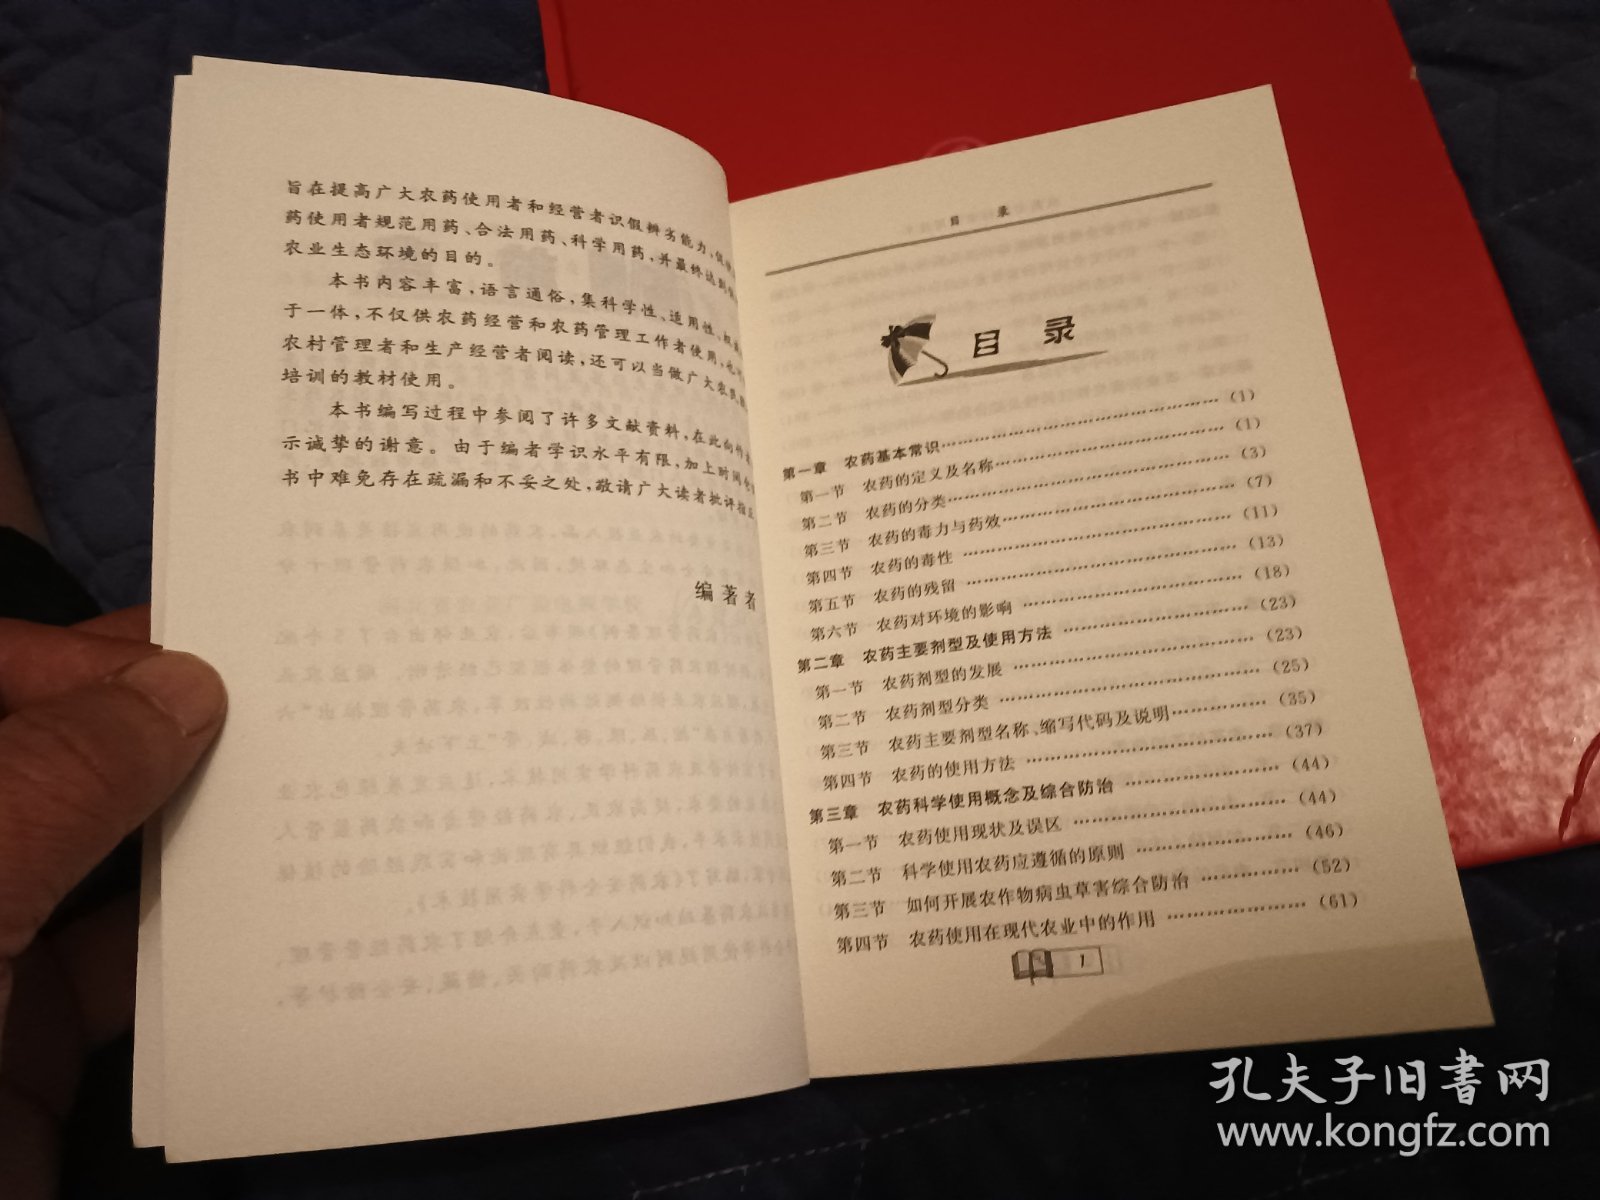 旨在提高广大农药使用者和经营者识假辨劣能力、促
药使用者规范用药、合法用药、科学用药,并最终达到
农业生态环境的目的。
本书内容丰富,语言通俗,集科学性、适用性、
于一体,不仅供农药经营和农药管理工作者使用,也
农村管理者和生产经营者阅读,还可以当做广大农民
培训的教材使用。
本书编写过程中参阅了许多文献资料,在此向作
示诚挚的谢意。由于编者学识水平有限,加上时间仓
书中难免存在疏漏和不妥之处,敬请广大读者批评指正
编著者
目 录
目 录
第一章 农药基本常识………………………(1)
第一节 农药的定义及名称………………………(1)
第二节 农药的分类………………………(3)
第三节 农药的毒力与药效………………………(7)
第四节 农药的毒性………………………(11)
第五节 农药的残留………………………(13)
第六节 农药对环境的影响………………………(18)
第二章 农药主要剂型及使用方法………………………(23)
第一节 农药剂型的发展………………………(23)
第二节 农药剂型分类………………………(25)
第三节 农药主要剂型名称、缩写代码及说明…………(35)
第四节 农药的使用方法………………………(37)
第三章 农药科学使用概念及综合防治………………(44)
第一节 农药使用现状及误区………………………(44)
第二节 科学使用农药应遵循的原则………………(46)
第三节 如何开展农作物病虫草害综合防治…………(52)
第四节 农药使用在现代农业中的作用………………(61)
1
孔夫子旧书网
www.kongfz.com